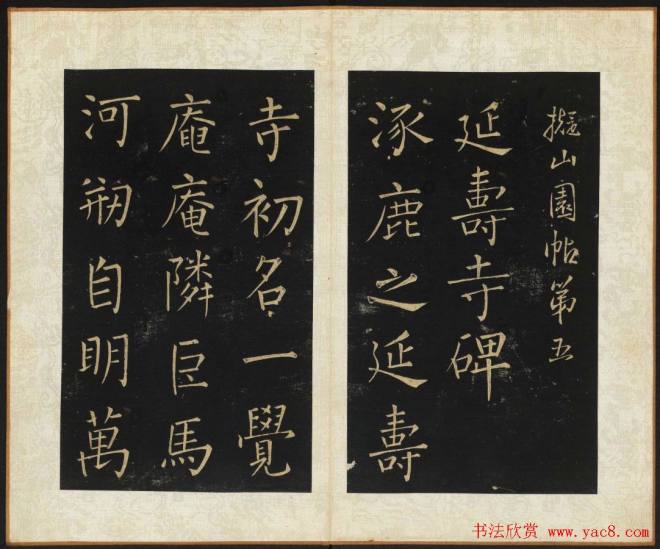 擬山園帖第五
延壽寺碑
涿鹿之延壽
寺初名一覺
庵庵隣巨馬
河剏自明萬
书法欣赏 www.yac8.com